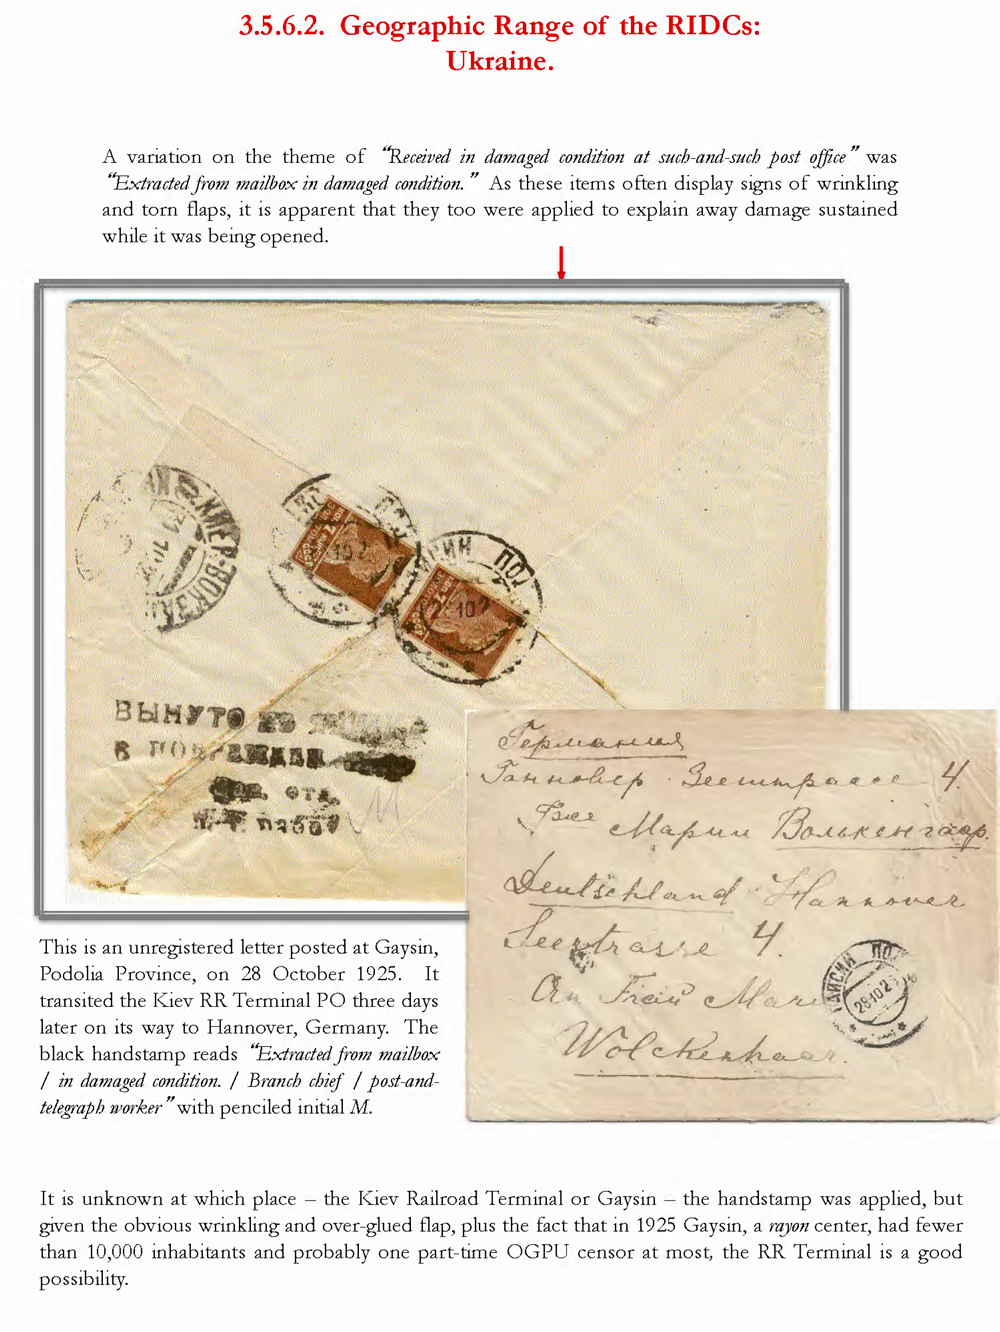 3.5.6.2. Geographic Range of the RIDCs:
Ukraine.
A variation on the theme of “Received in damaged condition at such-and-such post office” was
“Extracted from mailbox in damaged condition.” As these items often display signs of wrinkling
and torn flaps, it is apparent that they too were applied to explain away damage sustained
while it was being opened.
КИЕВ-ВОКЗАЛ
ПОД
28 10 2
ВЫНУТО
В ПОВРЕЖДЕН
отд.
М
Германия
Ганновер Зеештрассе 4.
Марии Волькенгаар.
Deutschland Hannover
Seestrasse 4.
An Frau Marie
Wolckenhaar.
ГАЙСИН ПОД
28 10 25
This is an unregistered letter posted at Gaysin,
Podolia Province, on 28 October 1925. It
transited the Kiev RR Terminal PO three days
later on its way to Hannover, Germany. The
black handstamp reads “Extracted from mailbox
/ in damaged condition. / Branch chief / post-and-
telegraph worker” with penciled initial M.
It is unknown at which place – the Kiev Railroad Terminal or Gaysin – the handstamp was applied, but
given the obvious wrinkling and over-glued flap, plus the fact that in 1925 Gaysin, a rayon center, had fewer
than 10,000 inhabitants and probably one part-time OGPU censor at most, the RR Terminal is a good
possibility.